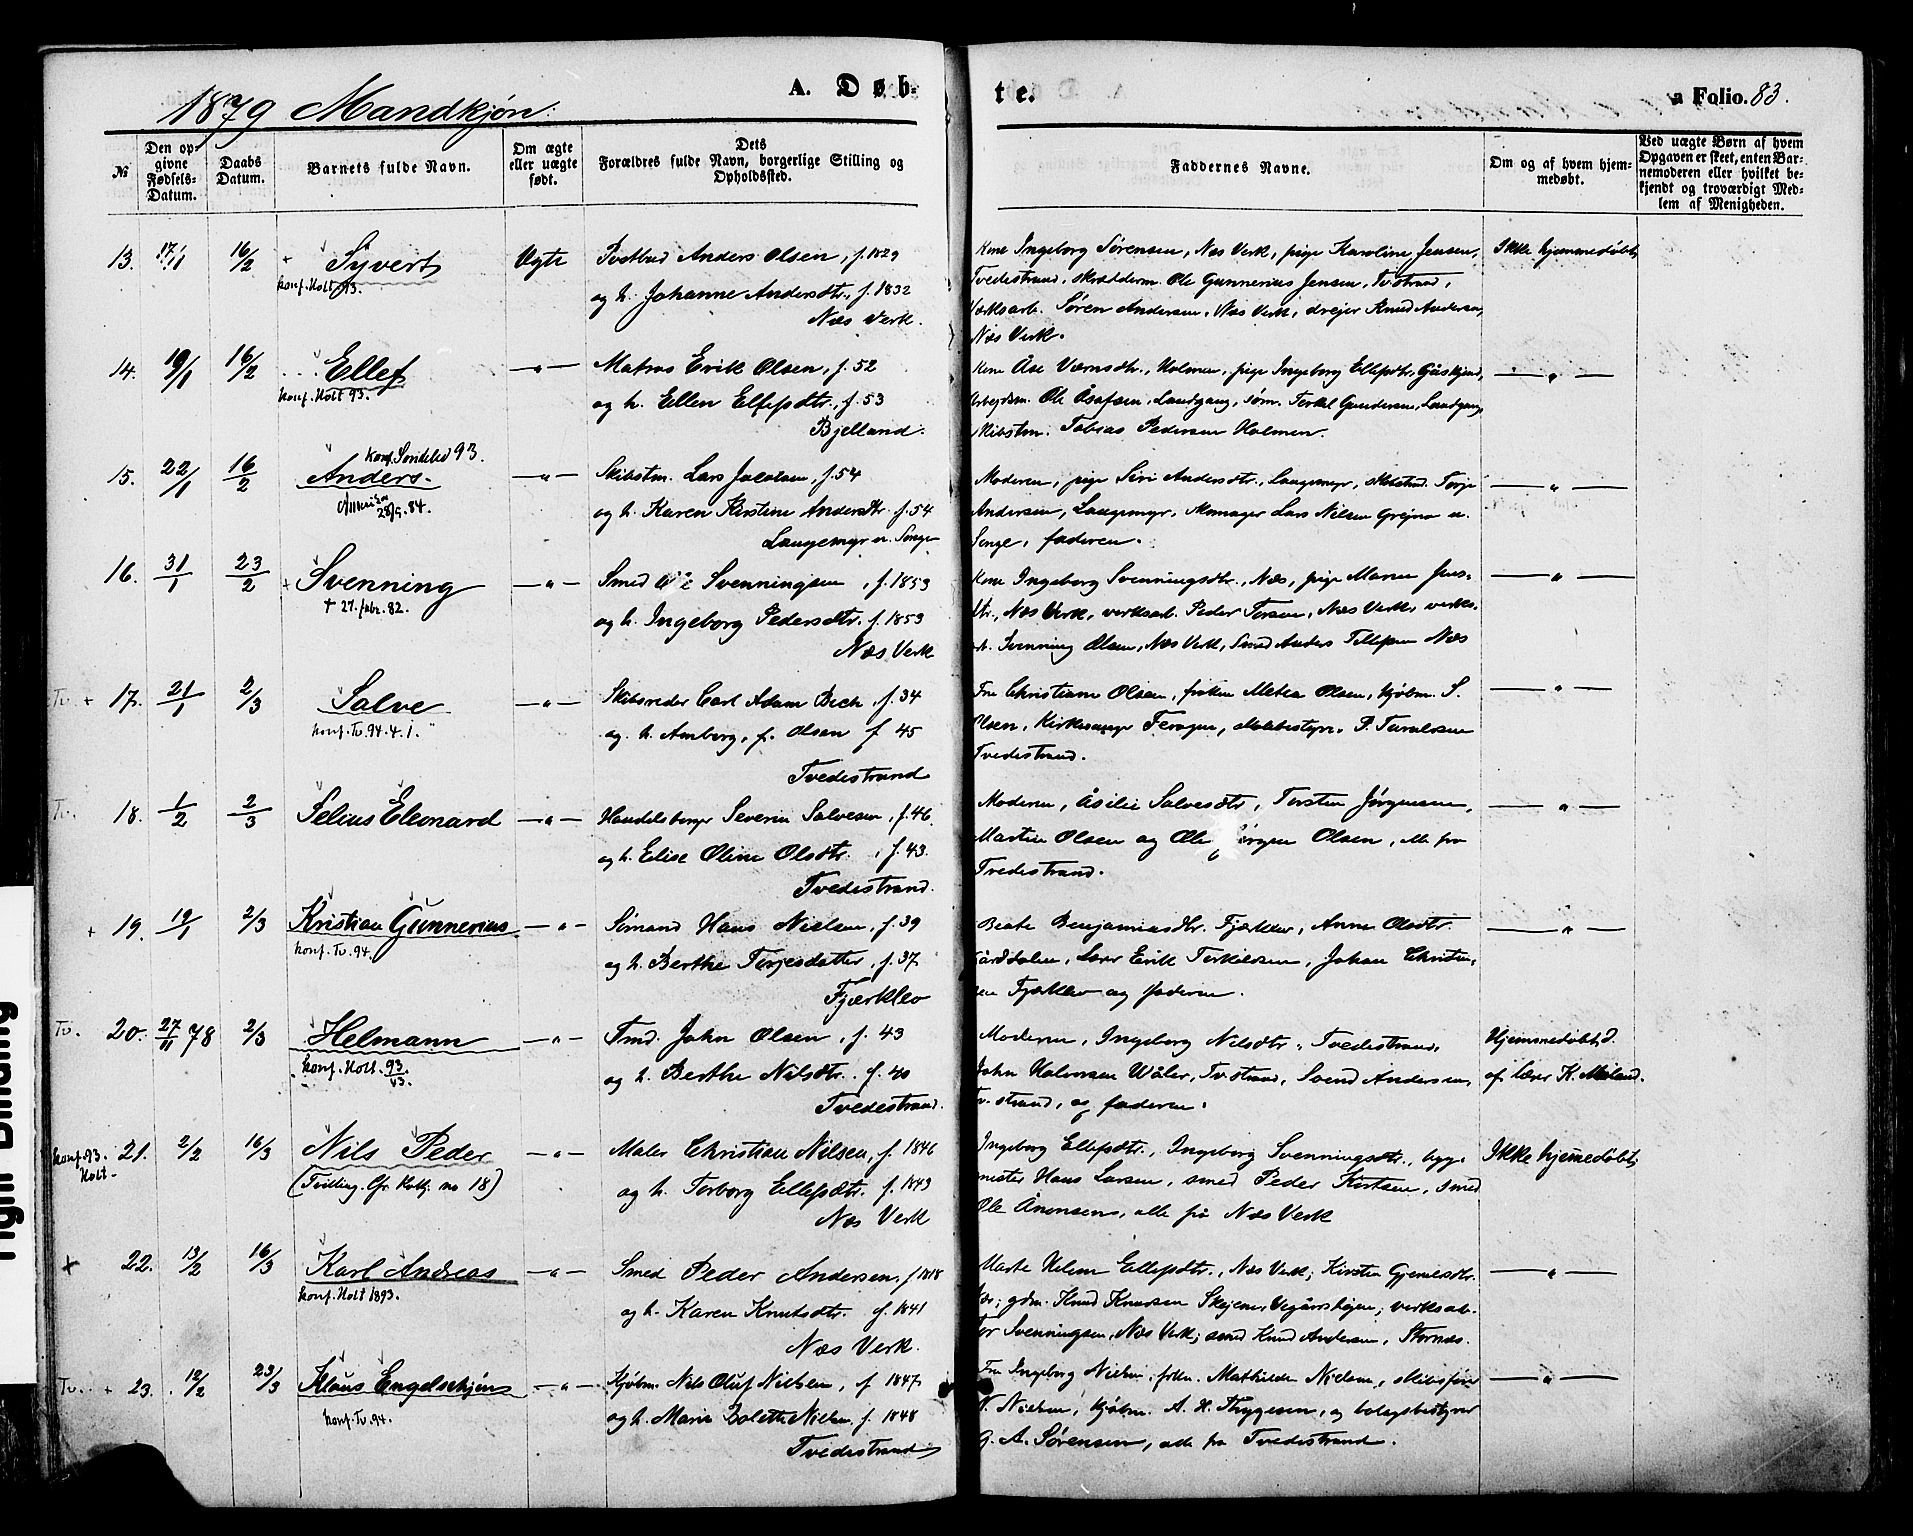 1879 Mandkjøn.
A. Døb-
te.
a Folio. 83.
№
Den op-
givne
Fødsels-
Datum.
Daabs
Datum.
Barnets fulde Navn.
Om ægte
eller uægte
født.
Dets
Forældres fulde Navn, borgerlige Stilling og
Opholdssted.
Faddernes Navne.
Om og af hvem hjem-
medøbt.
Ved uægte Børn af hvem
Opgaven er skeet, enten Bar-
nemoderen eller hvilket be-
kjendt og troværdigt Med-
lem af Menigheden.
13. 17/1 16/2 Syvert Ægte
konf. Holt 93.
Postbud Anders Olsen, f. 1829
og h. Johanne Andersdtr., f. 1832
Næs Verk.
Kone Ingeborg Sørensen, Næs Verk, pige Karoline Jensen,
Tvedestrand, skrædderm. Ole Gunnerius Jensen, Tv.strand,
Værksarb. Søren Andersen, Næs Verk, drejer Knud Andersen,
Næs Verk.
Ikke hjemmedøbt
14. 19/1 16/2 Ellef — " —
konf. Holt 93.
Matros Erik Olsen, f. 52
og h. Ellen Ellefsdtr., f. 53
Bjelland.
Kone Åse Værnsdtr., Holmen, pige Ingeborg Ellefsdtr.,
Arbejdsm. Ole Åsafsen, Landgang, søm. Terkel Gundersen, Landgang,
Skibstm. Tobias Pedersen Holmen.
— " —
15. 22/1 16/2 Anders. — " —
konf. Søndeled 93.
28/9. 84.
Skibstm. Lars Jacobsen, f. 54
og h. Karen Kirstine Andersdtr. f. 54
Laugemyr u. Songe
Moderen, pige Siri Andersdtr., Laugemyr, Terje
Andersen, Laugemyr, Lars Nilsen Grejna u.
Songe, faderen.
— " —
16. 31/1 23/2 Svenning — " —
+ 27. febr. 82.
Smed Ole Svenningsen, f. 1853
og h. Ingeborg Pedersdtr. f. 1853
Næs Verk
Kone Ingeborg Svenningsdtr., Næs, pige Maren Jens-
dtr., Næs Verk, verksarb. Peder Torsen, Næs Verk, verks-
arb. Svenning Olsen, Næs Verk, Smed Anders Tellefsen Næs
— " —
Tv. + 17. 21/1 2/3 Salve — " —
konf. Tv. 94. 4. 1.
Skibsreder Carl Adam Bech, f. 34
og h. Amborg, f. Olsen f 45
Tvedestrand
Fru Christiane Olsen, frøken Metea Olsen, kjøbm. S.
Olsen, Kirkesanger Feragen,
Tvedestrand.
— " —
Tv. 18. 1/2 2/3 Selius Eleonard — " —
Handelsborger Severin Salvesen, f. 46.
og h. Elise Oline Olsdtr., f. 43.
Tvedestrand.
Moderen, Åsilie Salvesdtr, Torsten Jørgensen,
Martin Olsen og Ole Jørgen Olsen, alle fra
Tvedestrand.
— " —
+ 19. 19/1 2/3 Kristian Gunnerius — " —
konf. Tv. 94.
Sømand Hans Nielsen, f. 39
og h. Berthe Terjesdatter, f. 37
Fjærklev
Beate Benjaminsdtr. Anne Olsdtr.
Lærer Erik Terkelsen, Johan Christen-
sen Fjærklev og faderen.
— " —
Tv. 20. 27/11 78 2/3 Helmann — " —
konf. Holt. 93.
Tmd. John Olsen, f. 43
og h. Berthe Nilsdtr. f. 40
Tvedestrand.
Moderen, Ingeborg Nilsdtr., Tvedestrand,
John Halvorsen Wåler, Tv.strand, Svend Andersen,
Tv.strand, og faderen.
Hjemmedøbt
af Lærer K. Møland.
konf. 93. Holt. 21. 2/2 16/3 Nils Peder — " —
(Tvilling. Cfr. Kvkj. no 18)
Maler Christian Nilsen, f. 1846
og h. Torborg Ellefsdtr. f. 1843
Næs Verk
Ingeborg Ellefsdtr., Ingeborg Svenningsdtr., bygg-
mester Hans Larsen, smed Peder Knutsen, smed
Ole Ånonsen, alle på Næs Verk
Ikke hjemmedøbt
+ 22. 13/2 16/3 Karl Andreas — " —
konf. Holt 1893.
Smed Peder Andersen, f 1818
og h. Karen Knutsdtr. f. 1841
Næs Verk.
Marte Helene Ellefsdtr., Næs Verk; Kirsten Gjermundsdtr.
gdm. Knud Knudsen Skjerne, Vegårshejen; verksarb.
Tor Svenningsen, Næs Verk; smed Knud Andersen, Stornæs.
— " —
Tv. + 23. 12/2 23/3 Klaus Engelschjøn — " —
konf. Tv. 94.
Kjøbm. Nils Oluf Nielsen, f 1847
og h. Marie Bolette Nielsen f. 1848
Tvedestrand
Fru Ingeborg Nielsen, frøken Mathilde Nielsen, skibsfører
N. Nielsen, kjøbm. A. H. Thygesen, og bolagsbestyrer
G. A. Sørensen, alle fra Tvedestrand.
— " —